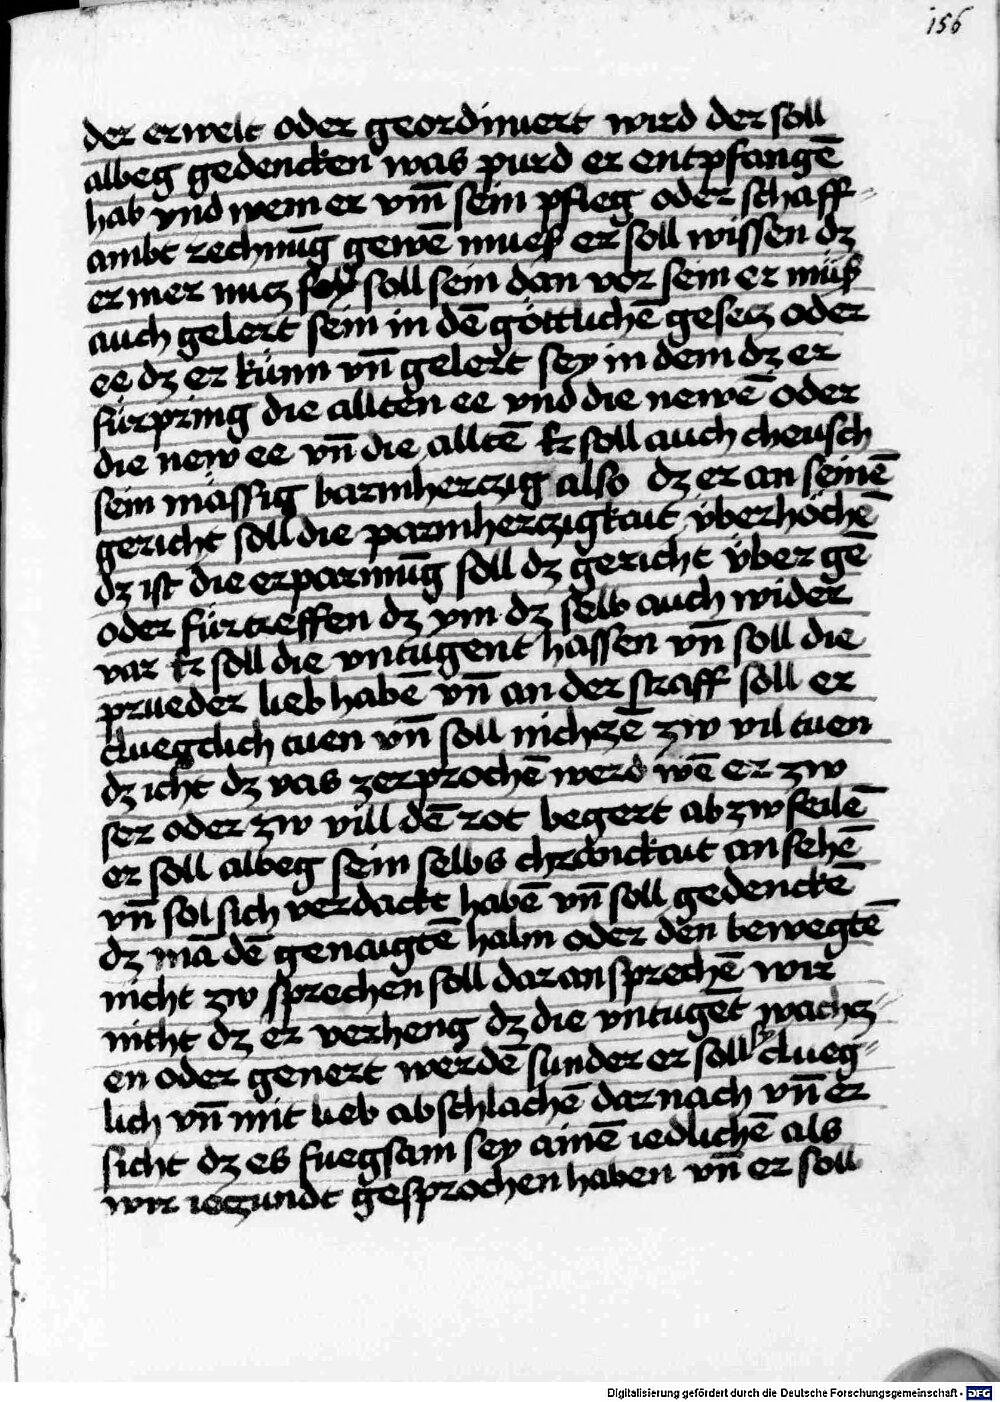 156
der erwelt oder geordiniert wird der soll
albeg gedencken was purd er entpfangē
hab vnd wem er vm̄ sein pfleg oder schaff-
ambt rechnūg gewē mueß er soll wissen dz
er mer nucz soll sein dan vor sein er müß
auch gelert sein in dē göttlichē gesecz oder
ee dz er künn vn̄ gelert sey in dem dz er
fürpring die allten ee vnd die newē oder
die new ee vn̄ die alltē Er soll auch cheusch
sein mässig barmherczig also dz er an seinē
gericht soll die parmherczigkait überhöchē
dz ist die erparmūg soll dz gericht über gē
oder fürtreffen dz ym dz selb auch wider
var Er soll die vntugent hassen vn̄ soll die
prueder lieb habē vn̄ an der straff soll er
cluegclich tuen vn̄ soll nichczē zw vil tuen
dz icht dz vas zerprochē werd wē er zw
ser oder zw vill dē rot begert ab zw feilē
er soll albeg sein selbs chranckait an sehē
vn̄ sol sich verdackt habē vn̄ soll gedenckē
dz mā dē genaigtē halm oder den bewegtē
nicht zw sprechen soll daran sprechē wir
nicht dz er verheng dz die vntugēt wachs-
en oder genert werdē sunder er soll sy clueg-
lich vn̄ mit lieb abschlachē darnach vn̄ er
sicht dz es fuegsam sey ainē iedlichē als
wir ieczundt gesprochen haben vn̄ er soll
Digitalisierung gefördert durch die Deutsche Forschungsgemeinschaft - DFG